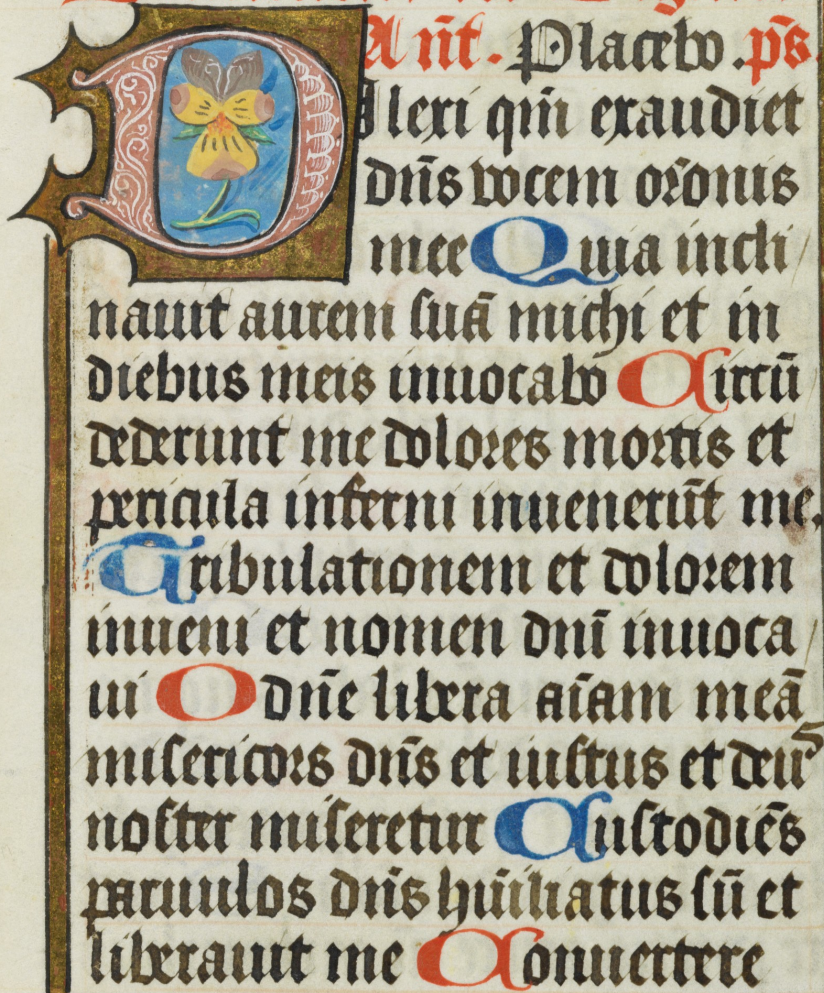 Añt. Placebo. ps̄.
Dilexi qm̄ exaudiet
dn̄s vocem or̄onis
mee Quia incli
nauit aurem suā michi et in
diebus meis inuocabo Circū
dederunt me dolores mortis et
pericula inferni inuenerūt me.
Tribulationem et dolorem
inueni et nomen dn̄i inuoca
ui O dn̄e libera aīam meā
misericors dn̄s et iustus et deus
noster miseretur Custodiēs
paruulos dn̄s hūiliatus sū et
liberauit me Conuertere